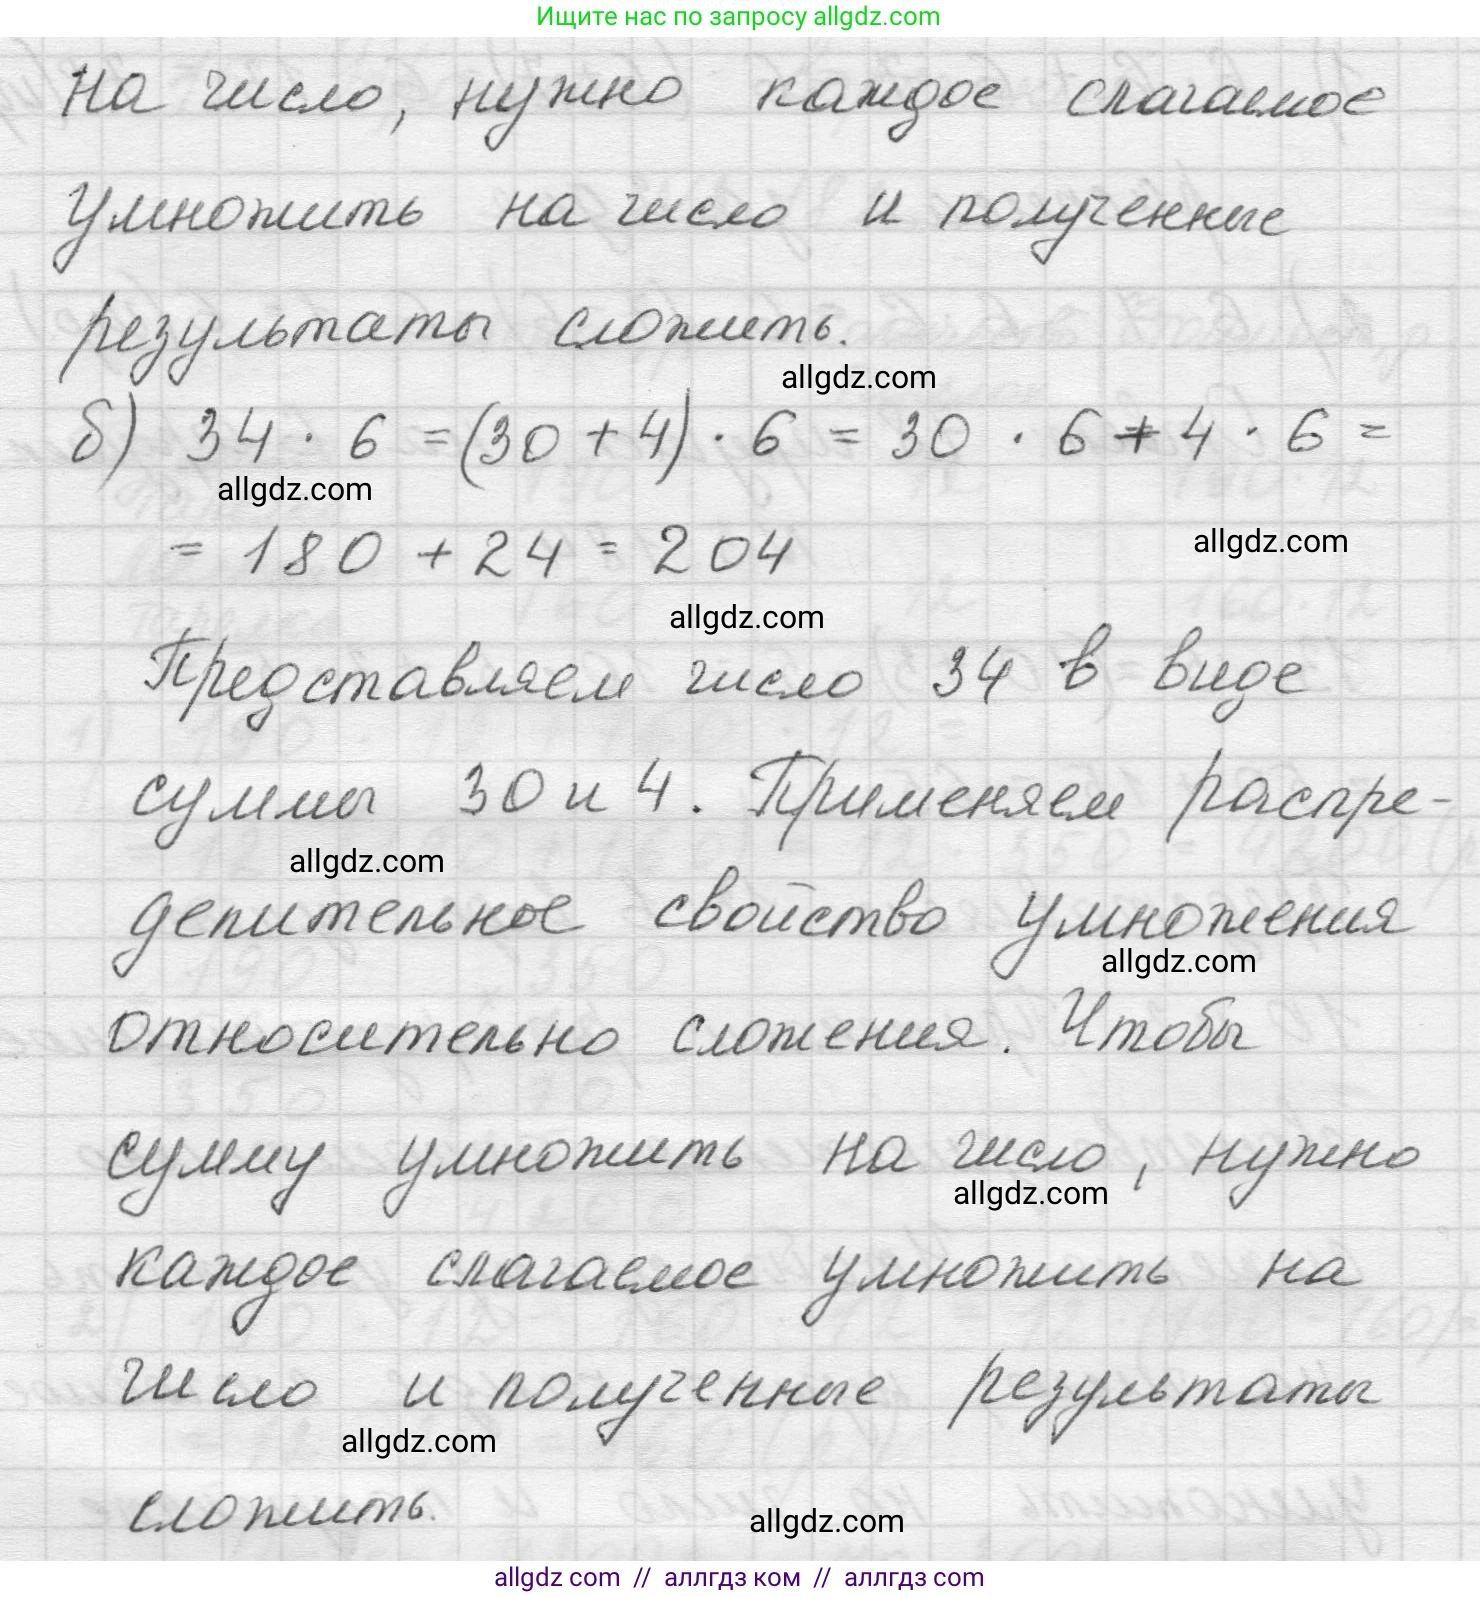 Ищите нас по запросу allgdz.com
на число, нужно каждое слагаемое
умножить на число и полученные
результаты сложить.
allgdz.com
б) 34 · 6 = (30 + 4) · 6 = 30 · 6 + 4 · 6 =
allgdz.com
= 180 + 24 = 204
allgdz.com
allgdz.com
Представляем число 34 в виде
суммы 30 и 4. Применяем распре-
allgdz.com
делительное свойство умножения
allgdz.com
относительно сложения. Чтобы
сумму умножить на число, нужно
allgdz.com
каждое слагаемое умножить на
число и полученные результаты
allgdz.com
сложить.
allgdz.com
allgdz com // аллгдз ком // аллгдз com